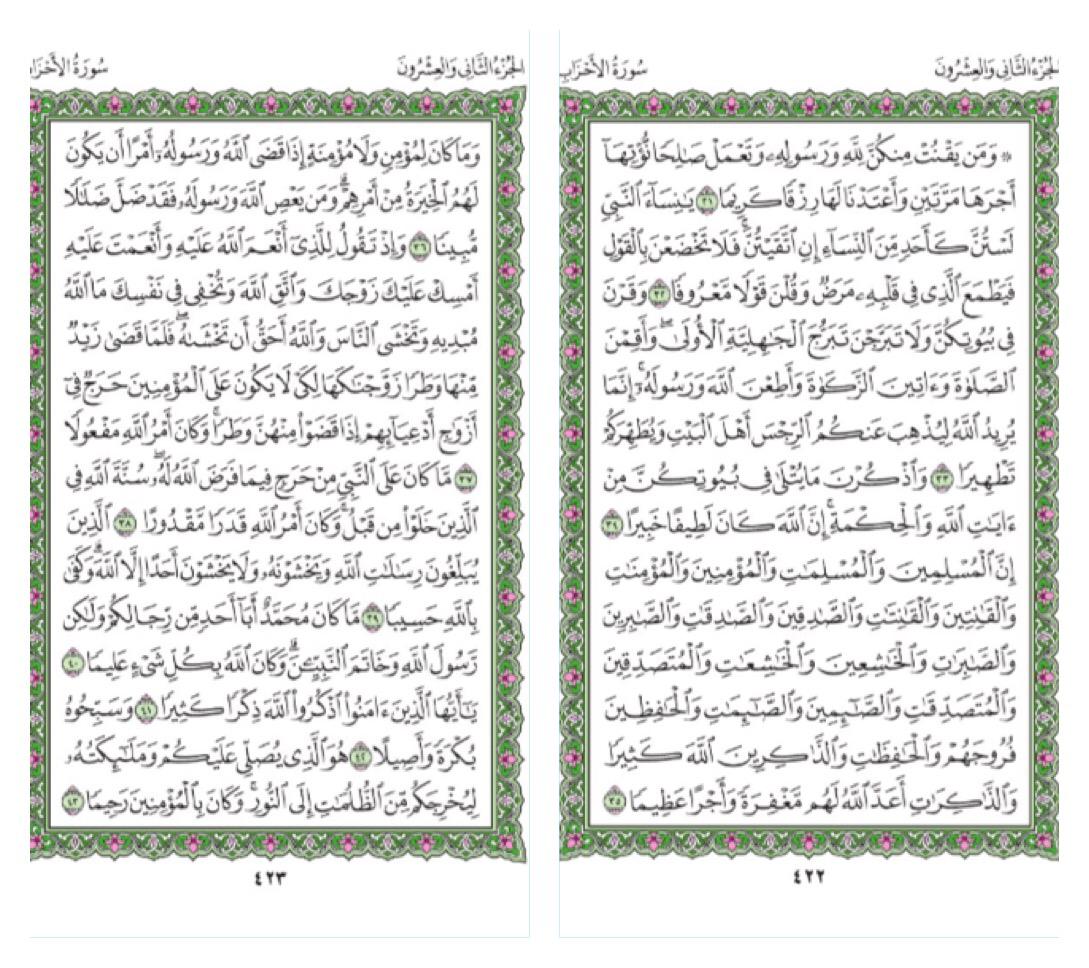 الجزء الثاني والعشرون
سورة الأحزاب
۞ وَمَن يَقْنُتْ مِنكُنَّ لِلَّهِ وَرَسُولِهِۦ وَتَعْمَلْ صَٰلِحًا نُّؤْتِهَآ
أَجْرَهَا مَرَّتَيْنِ وَأَعْتَدْنَا لَهَا رِزْقًا كَرِيمًا ٣١ يَٰنِسَآءَ ٱلنَّبِيِّ
لَسْتُنَّ كَأَحَدٍ مِّنَ ٱلنِّسَآءِ إِنِ ٱتَّقَيْتُنَّۚ فَلَا تَخْضَعْنَ بِٱلْقَوْلِ
فَيَطْمَعَ ٱلَّذِى فِى قَلْبِهِۦ مَرَضٌ وَقُلْنَ قَوْلًا مَّعْرُوفًا ٣٢ وَقَرْنَ
فِى بُيُوتِكُنَّ وَلَا تَبَرَّجْنَ تَبَرُّجَ ٱلْجَٰهِلِيَّةِ ٱلْأُولَىٰۖ وَأَقِمْنَ
ٱلصَّلَوٰةَ وَءَاتِينَ ٱلزَّكَوٰةَ وَأَطِعْنَ ٱللَّهَ وَرَسُولَهُۥٓۚ إِنَّمَا
يُرِيدُ ٱللَّهُ لِيُذْهِبَ عَنكُمُ ٱلرِّجْسَ أَهْلَ ٱلْبَيْتِ وَيُطَهِّرَكُمْ
تَطْهِيرًا ٣٣ وَٱذْكُرْنَ مَا يُتْلَىٰ فِى بُيُوتِكُنَّ مِنْ
ءَايَٰتِ ٱللَّهِ وَٱلْحِكْمَةِۚ إِنَّ ٱللَّهَ كَانَ لَطِيفًا خَبِيرًا ٣٤
إِنَّ ٱلْمُسْلِمِينَ وَٱلْمُسْلِمَٰتِ وَٱلْمُؤْمِنِينَ وَٱلْمُؤْمِنَٰتِ
وَٱلْقَٰنِتِينَ وَٱلْقَٰنِتَٰتِ وَٱلصَّٰدِقِينَ وَٱلصَّٰدِقَٰتِ وَٱلصَّٰبِرِينَ
وَٱلصَّٰبِرَٰتِ وَٱلْخَٰشِعِينَ وَٱلْخَٰشِعَٰتِ وَٱلْمُتَصَدِّقِينَ
وَٱلْمُتَصَدِّقَٰتِ وَٱلصَّٰٓئِمِينَ وَٱلصَّٰٓئِمَٰتِ وَٱلْحَٰفِظِينَ
فُرُوجَهُمْ وَٱلْحَٰفِظَٰتِ وَٱلذَّٰكِرِينَ ٱللَّهَ كَثِيرًا
وَٱلذَّٰكِرَٰتِ أَعَدَّ ٱللَّهُ لَهُم مَّغْفِرَةً وَأَجْرًا عَظِيمًا ٣٥
٤٢٢
الجزء الثاني والعشرون
سورة الأحزا
وَمَا كَانَ لِمُؤْمِنٍ وَلَا مُؤْمِنَةٍ إِذَا قَضَى ٱللَّهُ وَرَسُولُهُۥٓ أَمْرًا أَن يَكُونَ
لَهُمُ ٱلْخِيَرَةُ مِنْ أَمْرِهِمْۗ وَمَن يَعْصِ ٱللَّهَ وَرَسُولَهُۥ فَقَدْ ضَلَّ ضَلَٰلًا
مُّبِينًا ٣٦ وَإِذْ تَقُولُ لِلَّذِىٓ أَنْعَمَ ٱللَّهُ عَلَيْهِ وَأَنْعَمْتَ عَلَيْهِ
أَمْسِكْ عَلَيْكَ زَوْجَكَ وَٱتَّقِ ٱللَّهَ وَتُخْفِى فِى نَفْسِكَ مَا ٱللَّهُ
مُبْدِيهِ وَتَخْشَى ٱلنَّاسَ وَٱللَّهُ أَحَقُّ أَن تَخْشَىٰهُۖ فَلَمَّا قَضَىٰ زَيْدٌ
مِّنْهَا وَطَرًا زَوَّجْنَٰكَهَا لِكَىْ لَا يَكُونَ عَلَى ٱلْمُؤْمِنِينَ حَرَجٌ فِىٓ
أَزْوَٰجِ أَدْعِيَآئِهِمْ إِذَا قَضَوْا۟ مِنْهُنَّ وَطَرًاۚ وَكَانَ أَمْرُ ٱللَّهِ مَفْعُولًا
٣٧ مَّا كَانَ عَلَى ٱلنَّبِيِّ مِنْ حَرَجٍ فِيمَا فَرَضَ ٱللَّهُ لَهُۥۖ سُنَّةَ ٱللَّهِ فِى
ٱلَّذِينَ خَلَوْا۟ مِن قَبْلُۚ وَكَانَ أَمْرُ ٱللَّهِ قَدَرًا مَّقْدُورًا ٣٨ ٱلَّذِينَ
يُبَلِّغُونَ رِسَٰلَٰتِ ٱللَّهِ وَيَخْشَوْنَهُۥ وَلَا يَخْشَوْنَ أَحَدًا إِلَّا ٱللَّهَۗ وَكَفَىٰ
بِٱللَّهِ حَسِيبًا ٣٩ مَّا كَانَ مُحَمَّدٌ أَبَآ أَحَدٍ مِّن رِّجَالِكُمْ وَلَٰكِن
رَّسُولَ ٱللَّهِ وَخَاتَمَ ٱلنَّبِيِّـۧنَۗ وَكَانَ ٱللَّهُ بِكُلِّ شَىْءٍ عَلِيمًا ٤٠
يَٰٓأَيُّهَا ٱلَّذِينَ ءَامَنُوا۟ ٱذْكُرُوا۟ ٱللَّهَ ذِكْرًا كَثِيرًا ٤١ وَسَبِّحُوهُ
بُكْرَةً وَأَصِيلًا ٤٢ هُوَ ٱلَّذِى يُصَلِّى عَلَيْكُمْ وَمَلَٰٓئِكَتُهُۥ
لِيُخْرِجَكُم مِّنَ ٱلظُّلُمَٰتِ إِلَى ٱلنُّورِۚ وَكَانَ بِٱلْمُؤْمِنِينَ رَحِيمًا ٤٣
٤٢٣